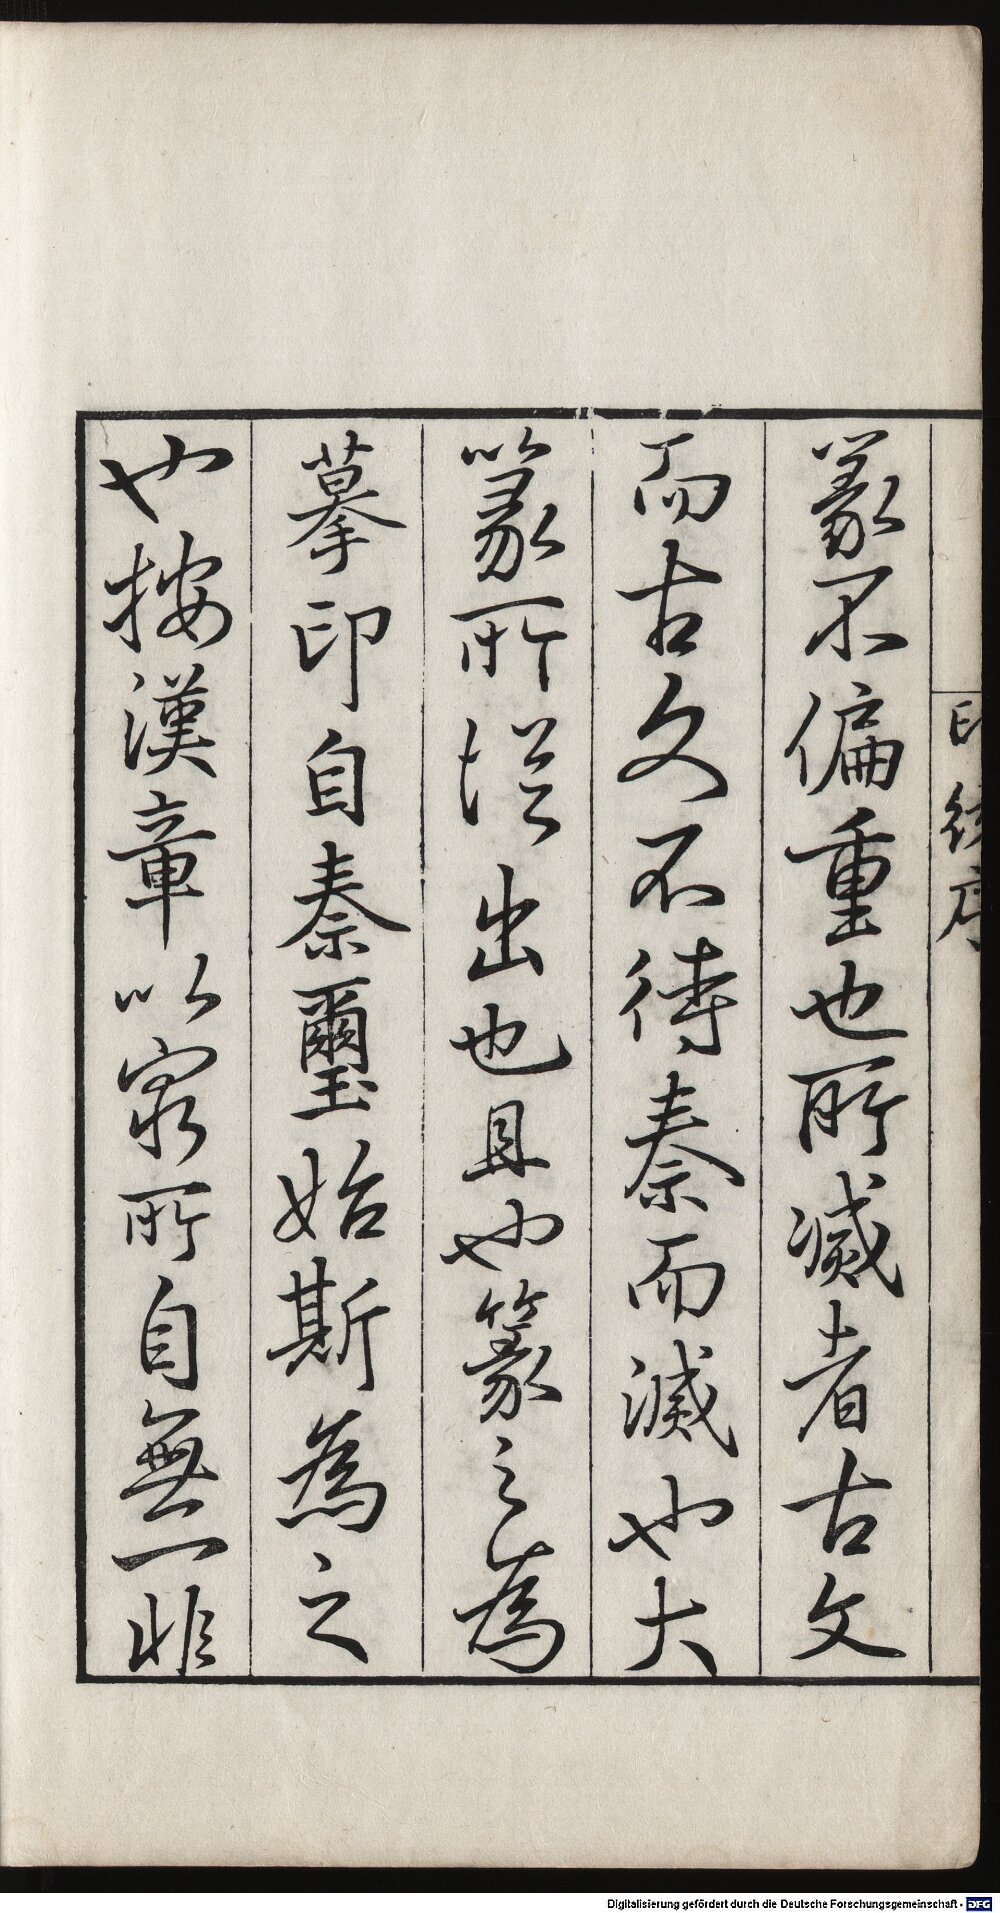 印後序
篆不偏重也所滅者古文
而古文不待秦而滅也大
篆所從出也且也篆之為
摹印自秦璽始斯為之
也按漢章以所自無一非
Digitalisierung gefördert durch die Deutsche Forschungsgemeinschaft - DFG